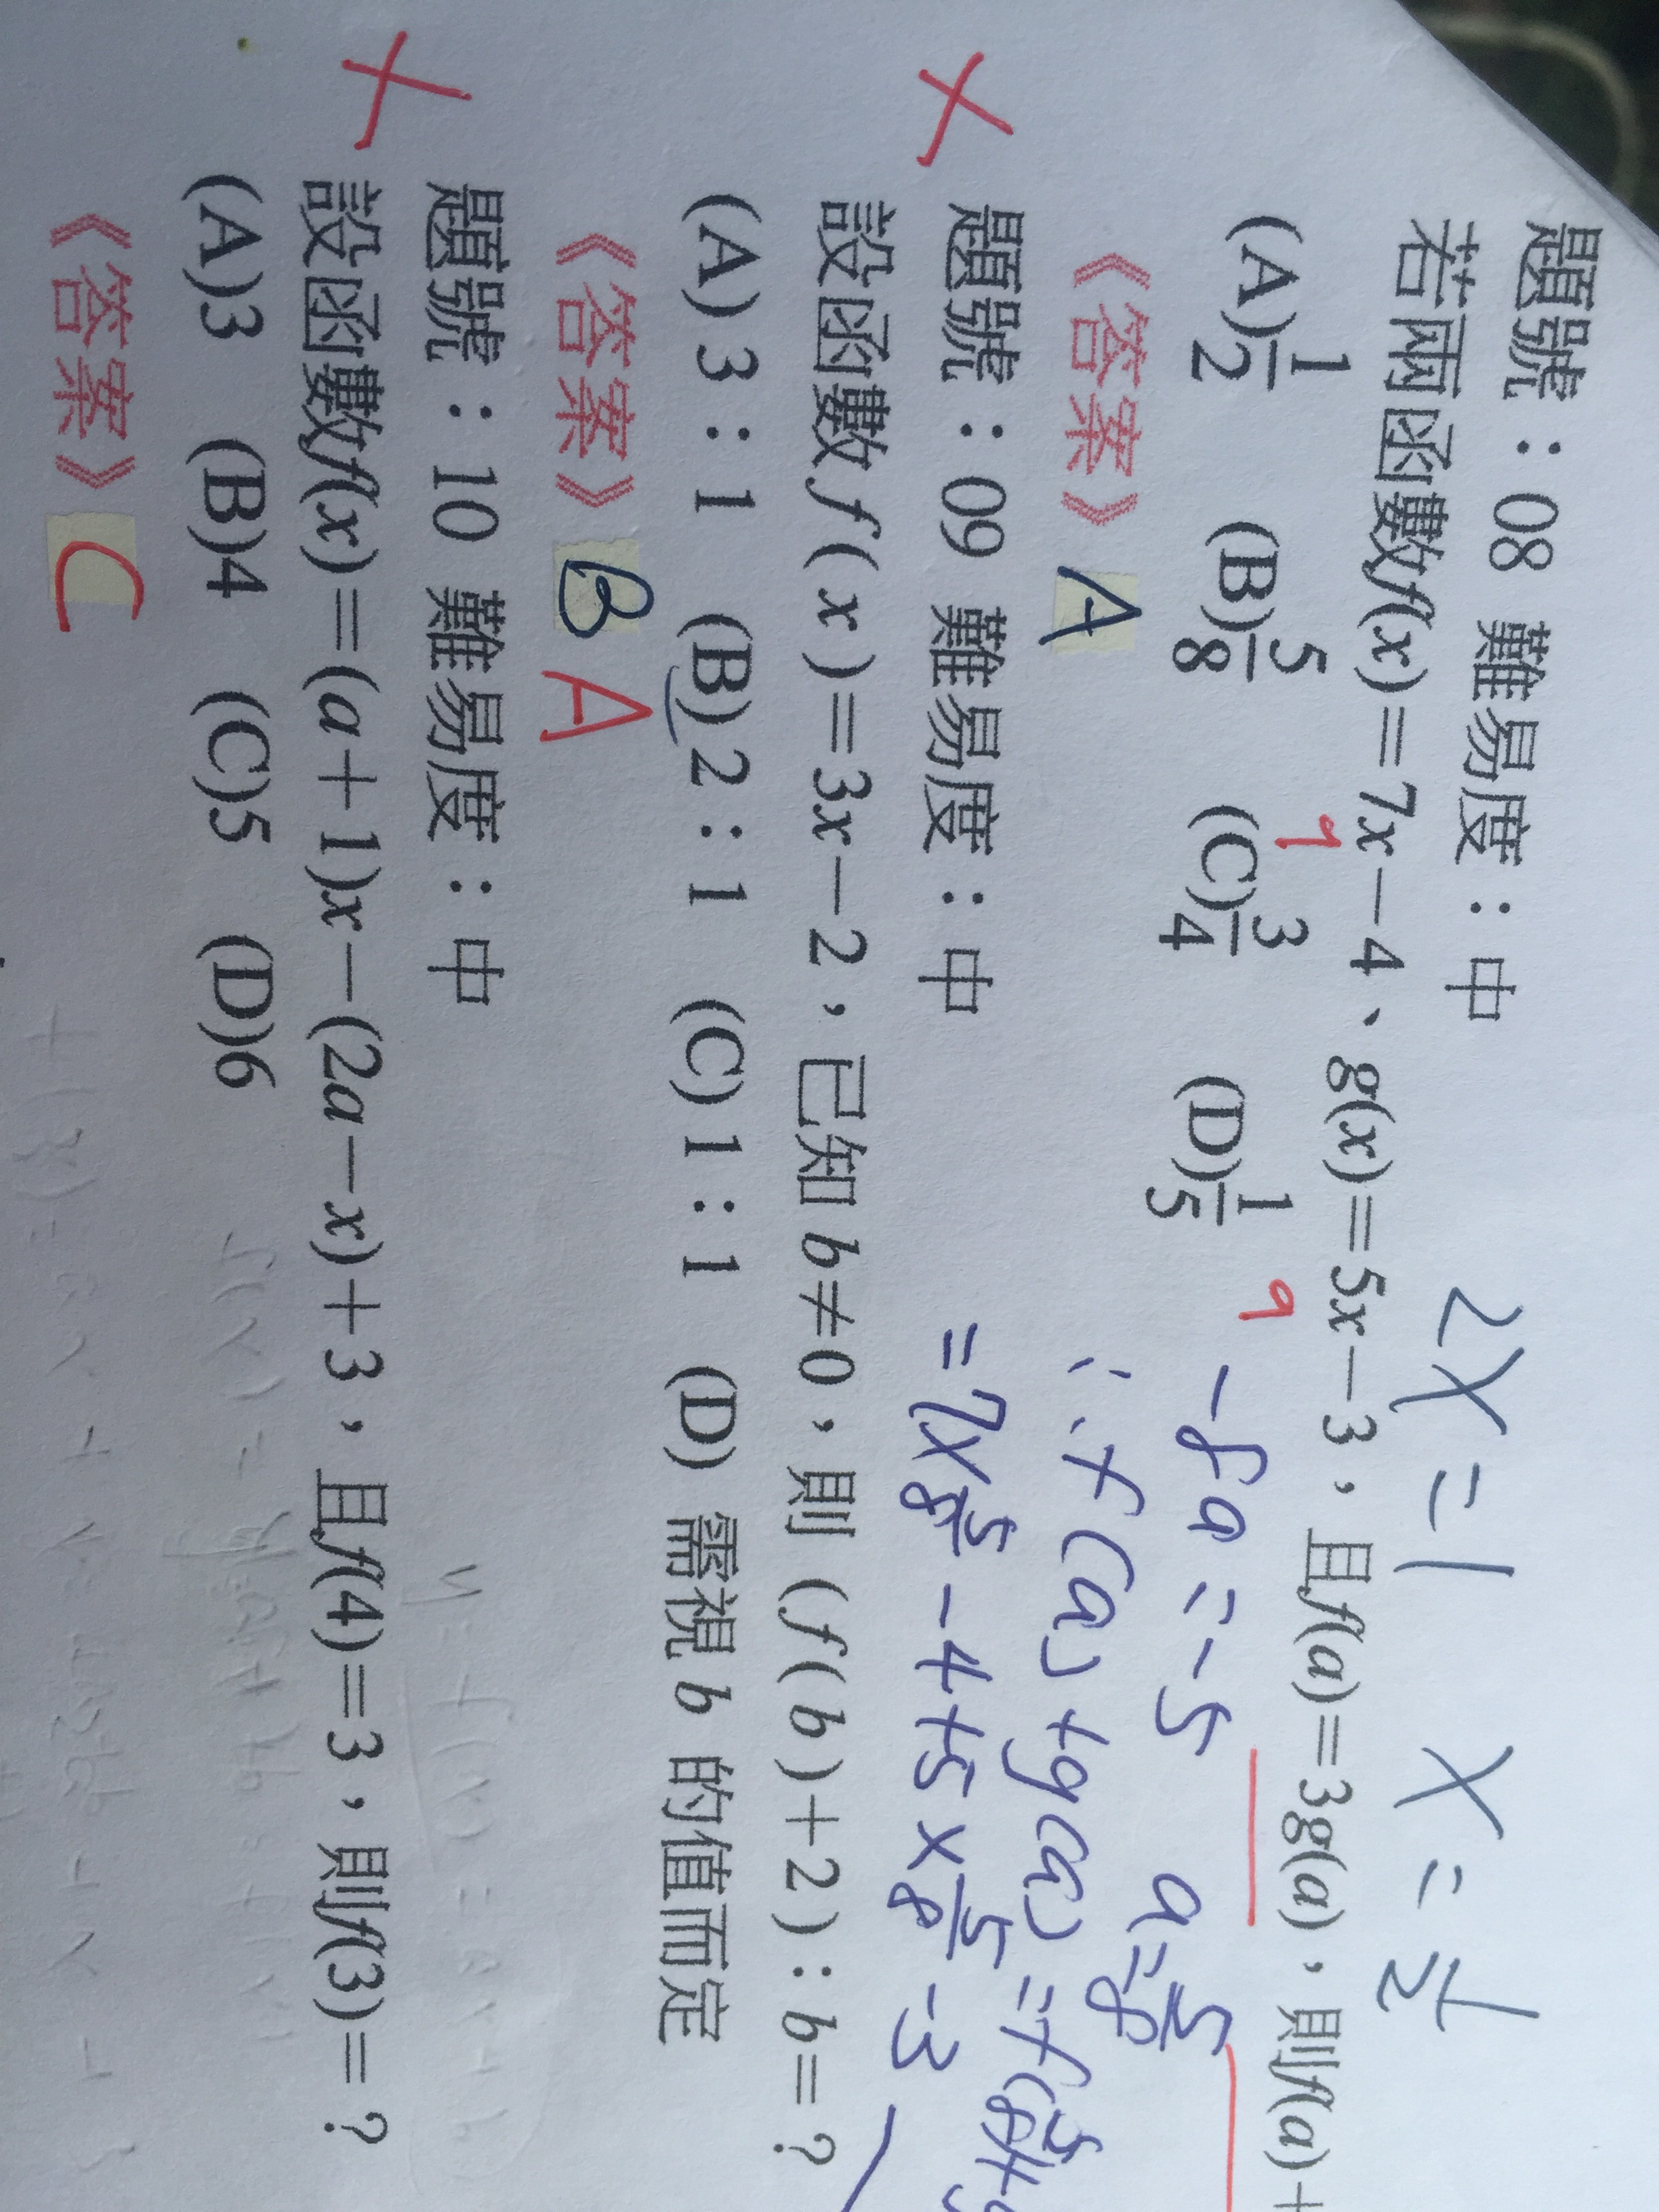 2x=1 x=1/2
題號：08 難易度：中
若兩函數f(x)=7x-4、g(x)=5x-3，且f(a)=3g(a)，則f(a)+
(A)1/2 (B)5/8 (C)3/4 (D)1/5
-8a=-5 a=5/8
《答案》A
∴f(a)+g(a)=f(5/8)+
=7x5/8-4+5x5/8-3
題號：09 難易度：中
設函數 f(x)=3x-2，已知 b≠0，則 (f(b)+2):b=?
(A) 3：1 (B) 2：1 (C) 1：1 (D) 需視 b 的值而定
《答案》B A
題號：10 難易度：中
設函數f(x)=(a+1)x-(2a-x)+3，且f(4)=3，則f(3)=?
(A)3 (B)4 (C)5 (D)6
《答案》C